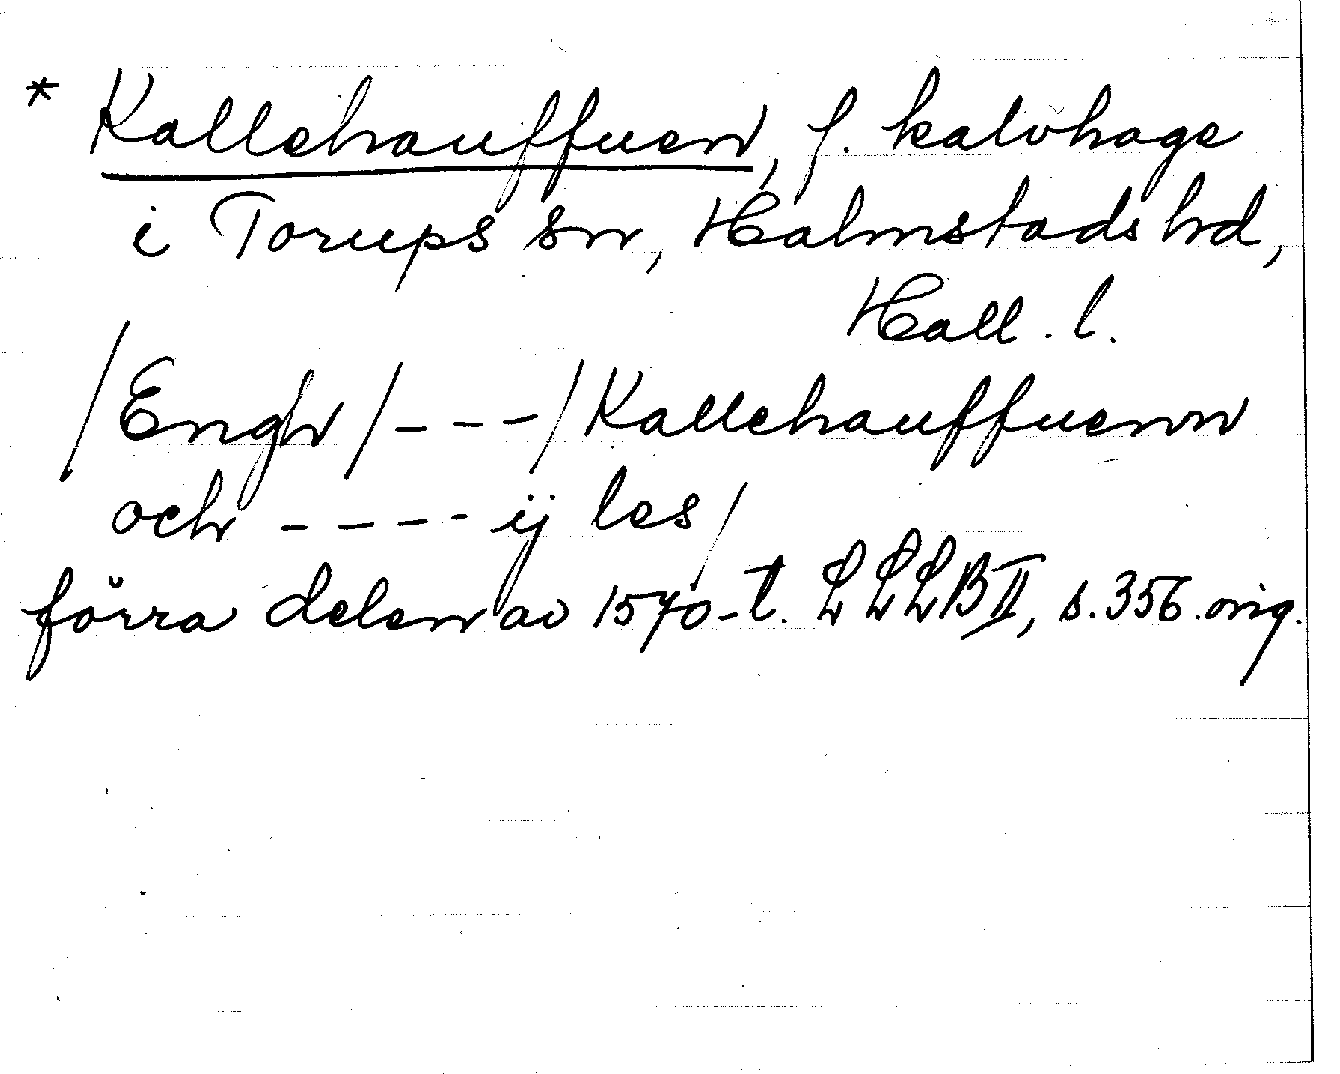 * Kallehauffuen, f. kalvhage
i Torups sn, Halmstads hd,
Hall. l.
/Engh/ - - - /Kallehauffuenn
och - - - - ij les/
förra delen av 1570-t. LLLB II, s. 356. orig.